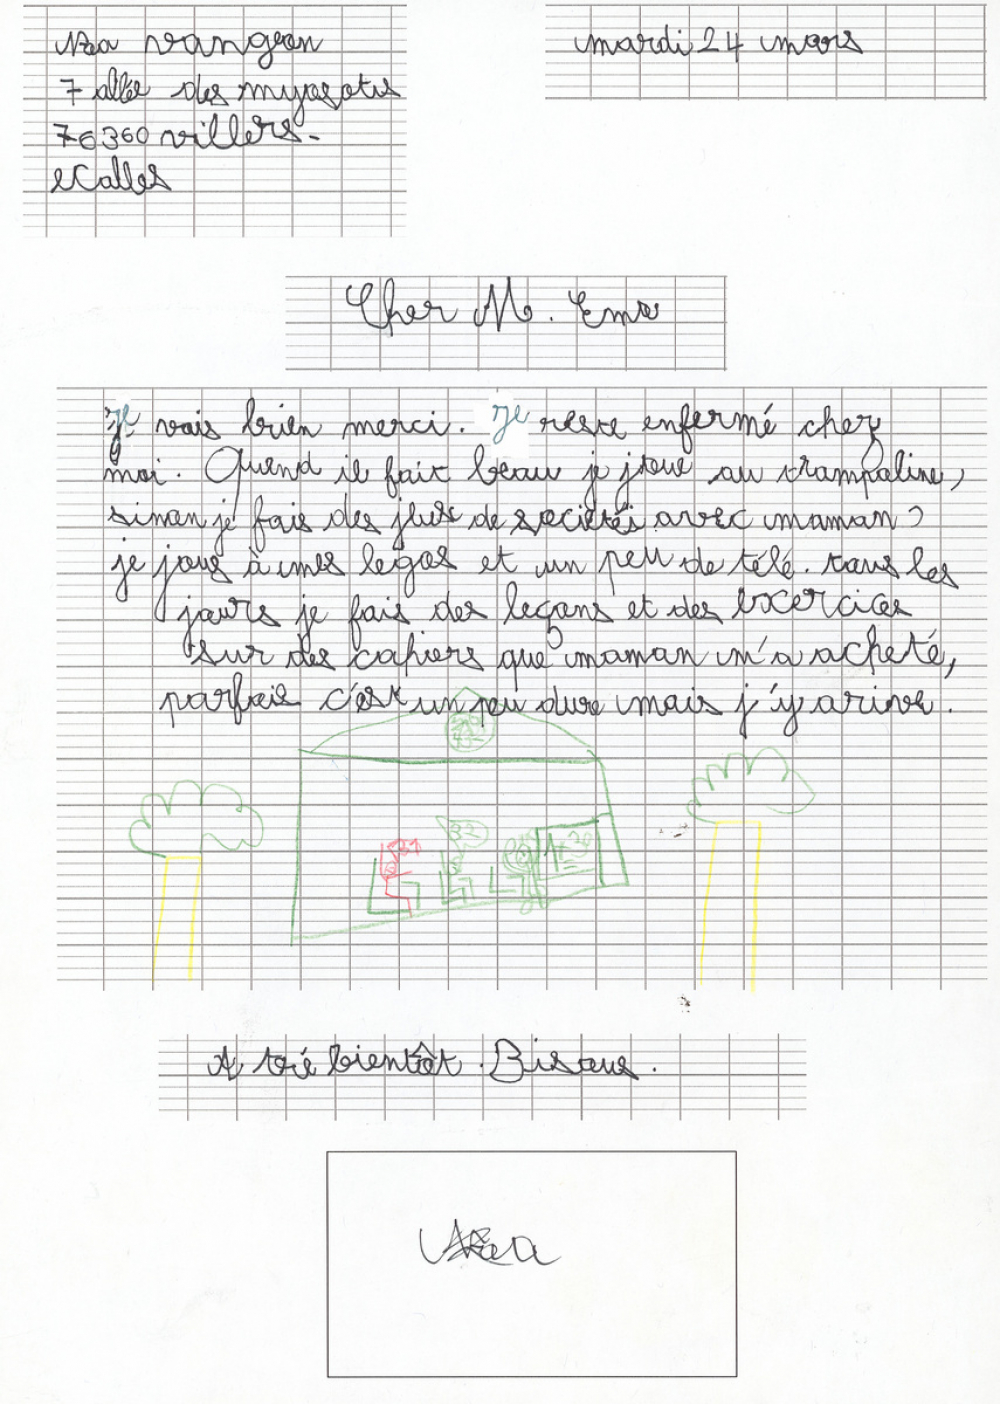 vangeon
mardi 24 mars
7 allée des myosotis
76360 villers-
eCalles
Cher M. Ema
je vais bien merci. Je reste enfermé chez
moi. Quand il fait beau je joue au trampoline,
sinon je fais des jeux de sociétés avec maman,
je joue à mes legos et un peu de télé. tous les
jours je fais des leçons et des exercices
sur des cahiers que maman m'a acheté,
parfois c'est un peu dure mais j'y arive.
32
A tré bientôt. Bisous.